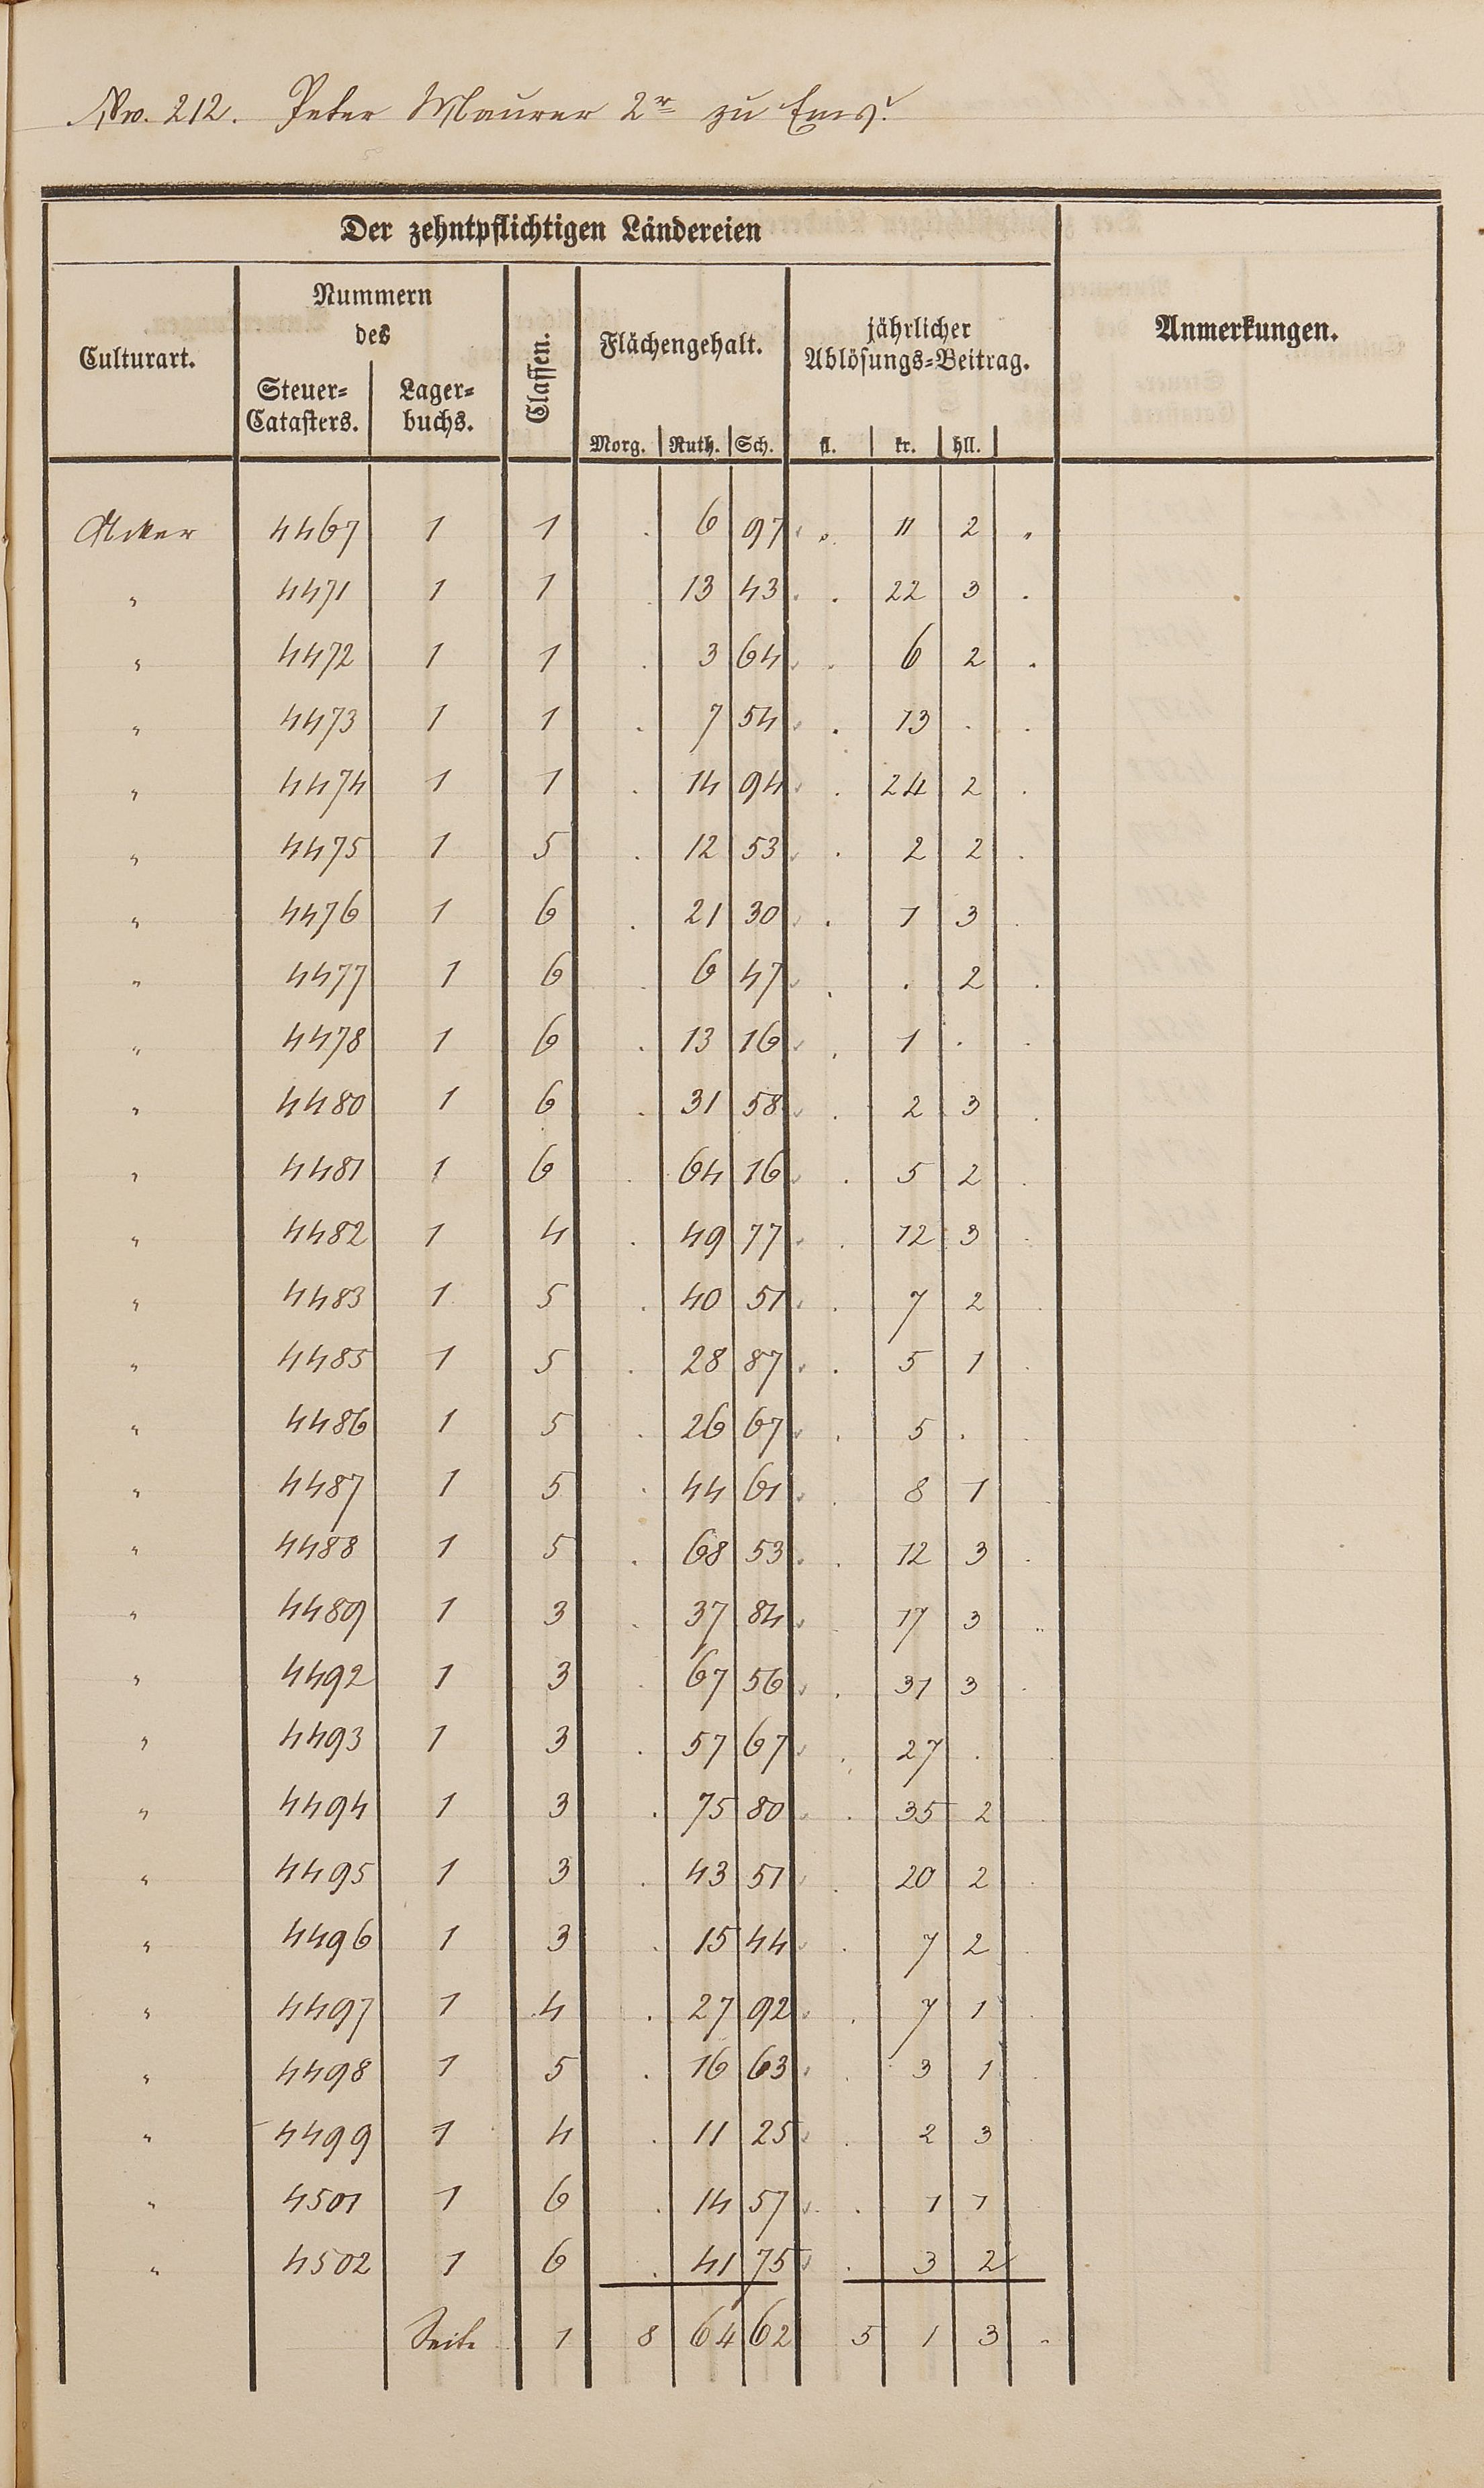 No. 212. Peter Maurer 2r zu Ems.
Der zehntpflichtigen Ländereien
Culturart. Nummern des Steuer-Catasters. Lager-buchs. Classen. Flächengehalt. Morg. Ruth. Sch. jährlicher Ablösungs-Beitrag. fl. kr. hll. Anmerkungen.
Acker 4467 1 1 . 6 97 . 11 2 .
" 4471 1 1 . 13 43 . 22 3 .
" 4472 1 1 . 3 64 . 6 2 .
" 4473 1 1 . 7 54 . 13 . .
" 4474 1 1 . 14 94 . 24 2 .
" 4475 1 5 . 12 53 . 2 2 .
" 4476 1 6 . 21 30 . 1 3 .
" 4477 1 6 . 6 47 . . 2 .
" 4478 1 6 . 13 16 . 1 . .
" 4480 1 6 . 31 58 . 2 3 .
" 4481 1 6 . 64 16 . 5 2 .
" 4482 1 4 . 49 77 . 12 3 .
" 4483 1 5 . 40 51 . 7 2 .
" 4485 1 5 . 28 87 . 5 1 .
" 4486 1 5 . 26 67 . 5 . .
" 4487 1 5 . 44 61 . 8 1 .
" 4488 1 5 . 68 53 . 12 3 .
" 4489 1 3 . 37 84 . 17 3 .
" 4492 1 3 . 67 56 . 31 3 .
" 4493 1 3 . 57 67 . 27 . .
" 4494 1 3 . 75 80 . 35 2 .
" 4495 1 3 . 43 51 . 20 2 .
" 4496 1 3 . 15 44 . 7 2 .
" 4497 1 4 . 27 92 . 7 1 .
" 4498 1 5 . 16 63 . 3 1 .
" 4499 1 4 . 11 25 . 2 3 .
" 4501 1 6 . 14 57 . 1 1
" 4502 1 6 . 41 75 . 3 2
Seite 1 8 64 62 5 1 3 .